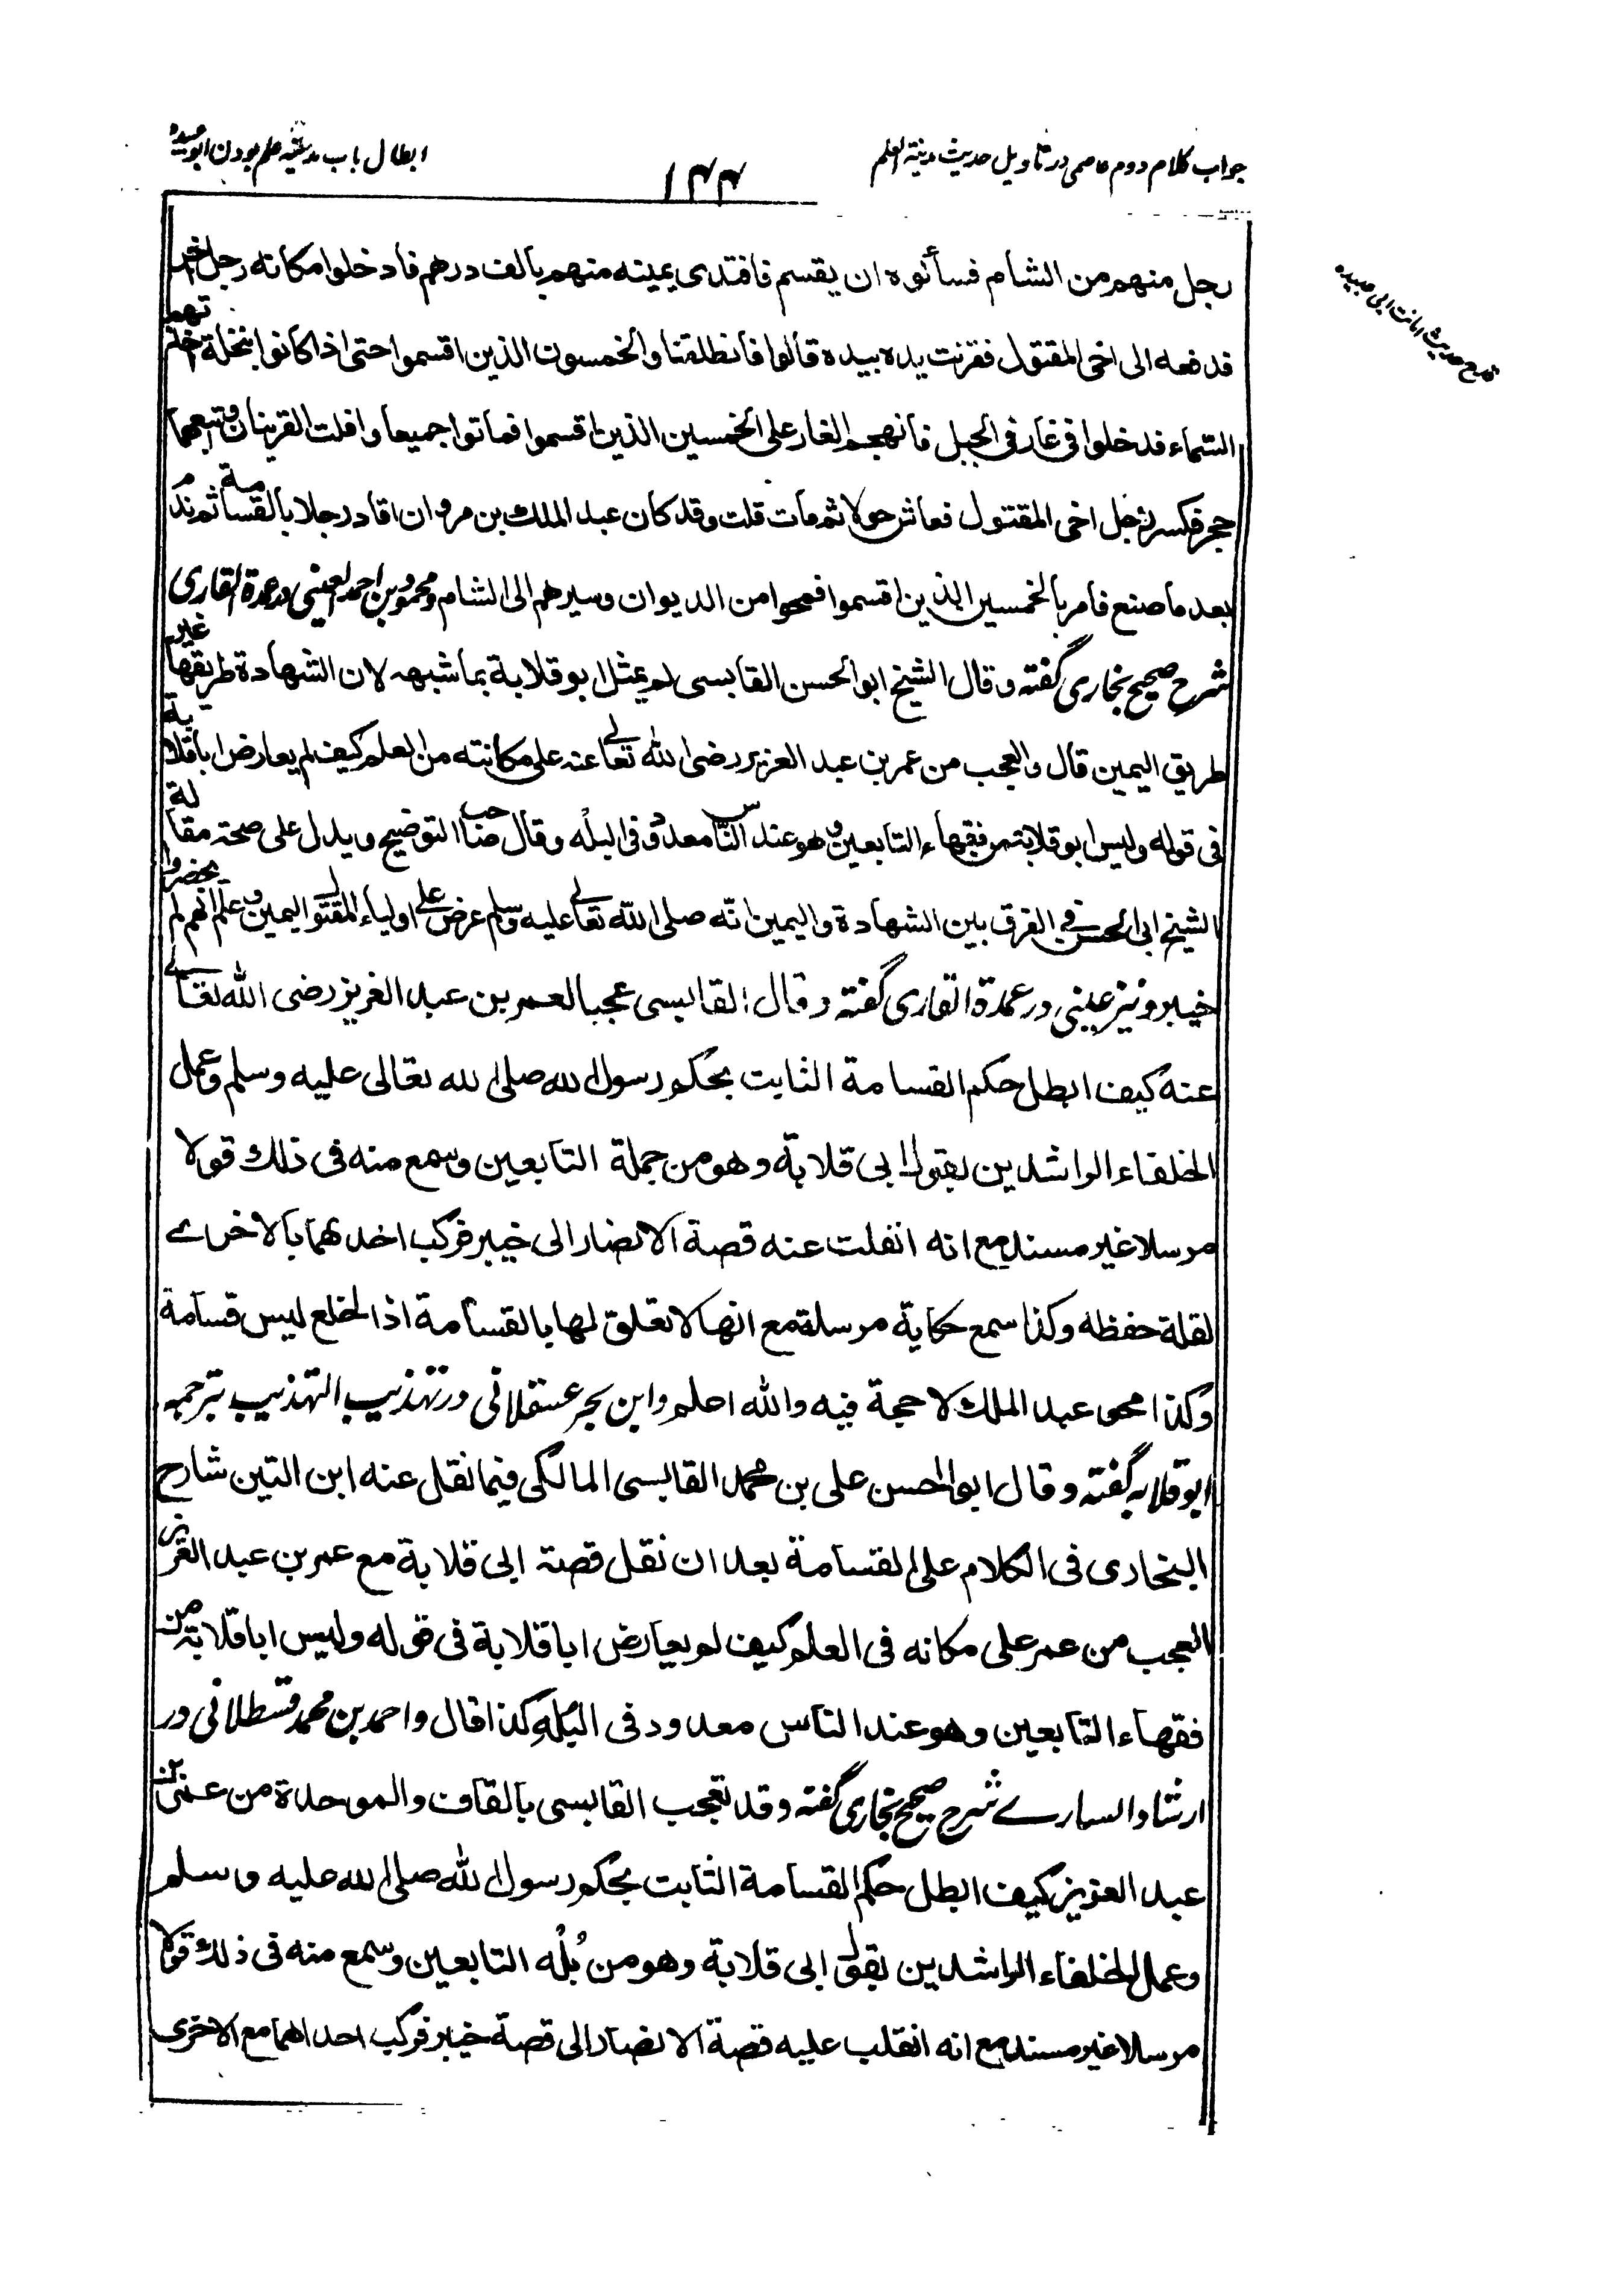 جواب کلام دوم عاصمی در تاویل حدیث مدینة العلم
۱۴۴
ابطال باب مدینه علم بودن ابو عبیده
قدح حدیث امانت ابی عبیده
رجل منهم من الشام فسألوه ان يقسم فافتدى يمينه منهم بالف درهم فادخلوا مكانه رجل اخر
فدفعه الى اخى المقتول فقرنت يده بيده قالوا فانطلقنا والخمسون الذين اقسموا حتى اذا كانوا بنخلة اخذتهم
السماء فدخلوا فى غار فى الجبل فانهجم الغار على الخمسين الذين اقسموا فماتوا جميعا وافلت القرينان وتبعهما
حجر فكسر رجل اخى المقتول فعاش حولا ثم مات قلت وقد كان عبد الملك بن مروان اقاد رجلا بالقسامة ثم ندم
بعد ما صنع فامر بالخمسين الذين اقسموا فمحوا من الديوان وسيرهم الى الشام ومحمود بن احمد العینی در عمدة القاری
شرح صحیح بخاری گفته وقال الشيخ ابو الحسن القابسى لم يمثل ابو قلابة بما شبهه لان الشهادة طريقها غير
طريق اليمين قال والعجب من عمر بن عبد العزيز رضى الله تعالى عنه على مكانته من العلم كيف لم يعارض ابا قلابة
فى قوله وليس ابو قلابة من فقهاء التابعين وهو عند الناس معدود فى البله وقال صاحب التوضيح ويدل على صحة مقالة
الشيخ ابى الحسن فى الفرق بين الشهادة واليمين انه صلى الله تعالى عليه وسلم عرض على اولياء المقتول اليمين وعلم انهم لم يحضروا
خيبر ونیز عینی در عمدة القاری گفته وقال القابسى عجبا لعمر بن عبد العزيز رضى الله تعالى
عنه كيف ابطل حكم القسامة الثابت بحكم رسول الله صلى الله تعالى عليه وسلم وعمل
الخلفاء الراشدين بقول ابى قلابة وهو من جملة التابعين وسمع منه فى ذلك قولا
مرسلا غير مسند مع انه انفلت عنه قصة الانصار الى خيبر فركب احدهما بالاخرى
لقلة حفظه وكذا سمع حكاية مرسلة مع انها لا تعلق لها بالقسامة اذ الخلع ليس قسامة
وكذا محو عبد الملك لا حجة فيه والله اعلم وابن حجر عسقلانی در تهذیب التهذیب بترجمه
ابو قلابه گفته وقال ابو الحسن على بن محمد القابسى المالكى فيما نقل عنه ابن التين شارح
البخارى فى الكلام على القسامة بعد ان نقل قصة ابى قلابة مع عمر بن عبد العزيز
العجب من عمر على مكانه فى العلم كيف لم يعارض ابا قلابة فى قوله وليس ابا قلابة من
فقهاء التابعين وهو عند الناس معدود فى البُلْهِ كذا قال واحمد بن محمد قسطلانی در
ارشاد الساری شرح صحیح بخاری گفته وقد تعجب القابسى بالقاف والموحدة من عمر بن
عبد العزيز كيف ابطل حكم القسامة الثابت بحكم رسول الله صلى الله عليه وسلم
وعمل الخلفاء الراشدين بقول ابى قلابة وهو من بُلْه التابعين وسمع منه فى ذلك قولا
مرسلا غير مسند مع انه انقلب عليه قصة الانصار الى قصة خيبر فركب احداهما مع الاخرى